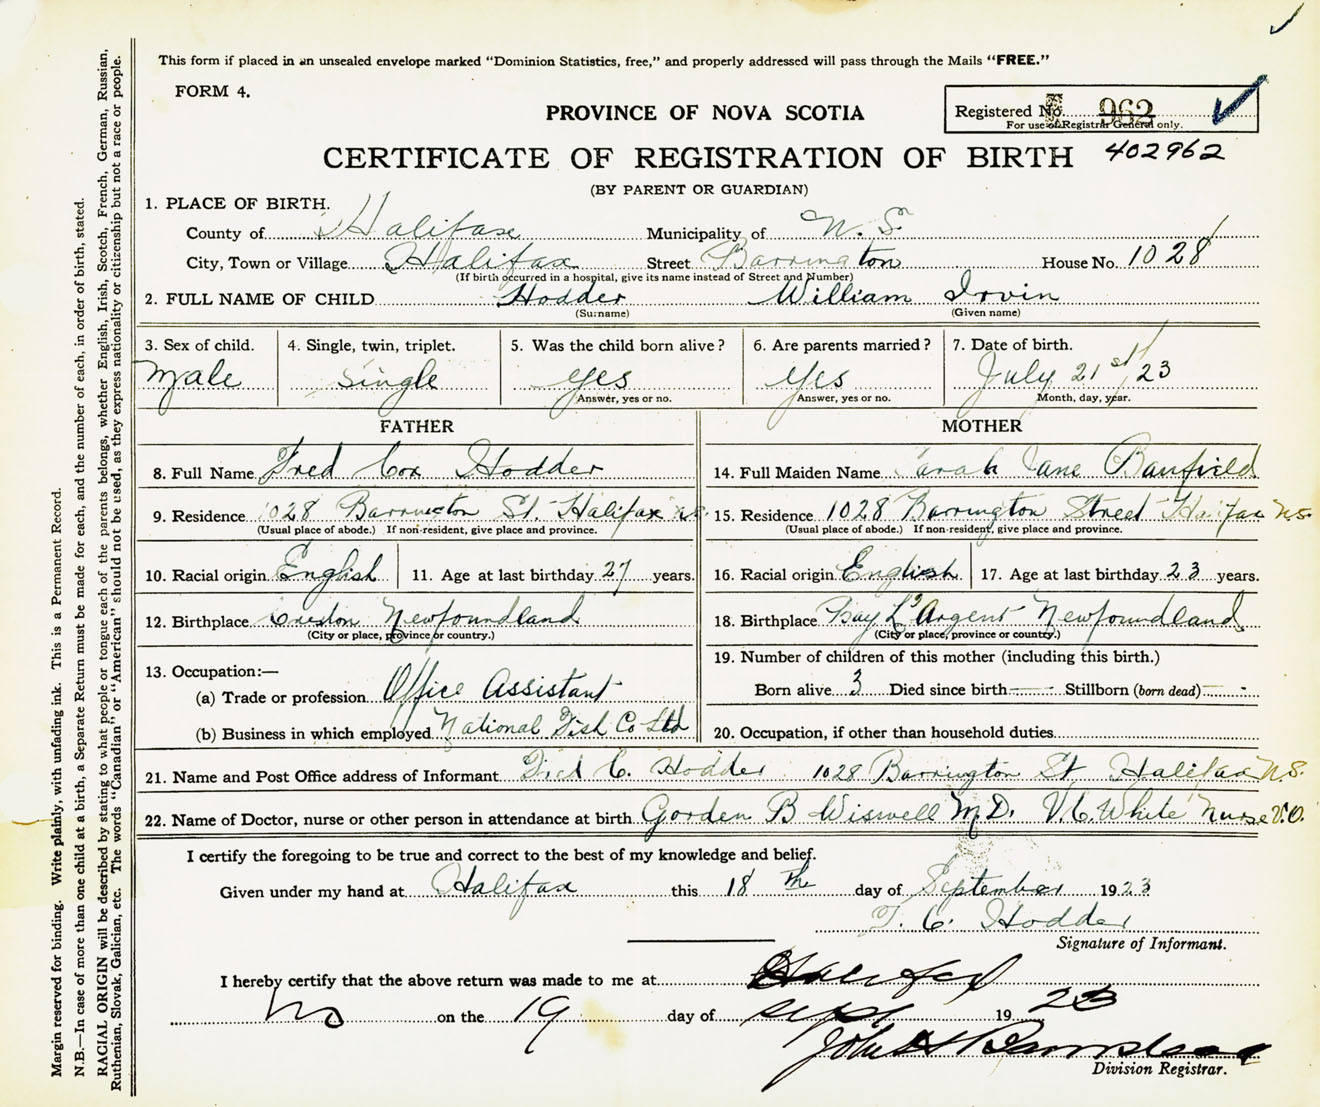 This form if placed in an unsealed envelope marked "Dominion Statistics, free," and properly addressed will pass through the Mails "FREE."
FORM 4.
PROVINCE OF NOVA SCOTIA
Registered No. 962
For use of Registrar General only.
CERTIFICATE OF REGISTRATION OF BIRTH 402962
(BY PARENT OR GUARDIAN)
1. PLACE OF BIRTH.
County of Halifax Municipality of N. S.
City, Town or Village Halifax Street Barrington House No. 1028
(If birth occurred in a hospital, give its name instead of Street and Number)
2. FULL NAME OF CHILD Hodder William Irvin
(Surname) (Given name)
3. Sex of child. 4. Single, twin, triplet. 5. Was the child born alive? 6. Are parents married? 7. Date of birth.
Male Single Yes Yes July 21st/23
Answer, yes or no. Answer, yes or no. Month, day, year.
FATHER MOTHER
8. Full Name Fred Cox Hodder 14. Full Maiden Name Sarah Jane Banfield
9. Residence 1028 Barrington St. Halifax N.S. 15. Residence 1028 Barrington Street Halifax N.S.
(Usual place of abode.) If non-resident, give place and province. (Usual place of abode.) If non-resident, give place and province.
10. Racial origin English 11. Age at last birthday 27 years. 16. Racial origin English 17. Age at last birthday 23 years.
12. Birthplace Creston Newfoundland 18. Birthplace Bay L'Argent Newfoundland
(City or place, province or country.) (City or place, province or country.)
13. Occupation:— 19. Number of children of this mother (including this birth.)
(a) Trade or profession Office Assistant Born alive 3 Died since birth — Stillborn (born dead) -
(b) Business in which employed National Fish Co Ltd 20. Occupation, if other than household duties
21. Name and Post Office address of Informant Fred C. Hodder 1028 Barrington St Halifax N.S.
22. Name of Doctor, nurse or other person in attendance at birth Gorden B Wiswell M.D. V.C. White Nurse V.O.
I certify the foregoing to be true and correct to the best of my knowledge and belief.
Given under my hand at Halifax this 18 th day of September 1923
F. C. Hodder
Signature of Informant.
I hereby certify that the above return was made to me at Halifax
NS on the 19 day of Sept 19 23
John H
Division Registrar.
Margin reserved for binding. Write plainly, with unfading ink. This is a Permanent Record.
N.B.—In case of more than one child at a birth, a Separate Return must be made for each, and the number of each, in order of birth, stated.
RACIAL ORIGIN will be described by stating to what people or tongue each of the parents belongs, whether English, Irish, Scotch, French, German, Russian,
Ruthenian, Slovak, Galician, etc. The words "Canadian" or "American" should not be used, as they express nationality or citizenship but not a race or people.